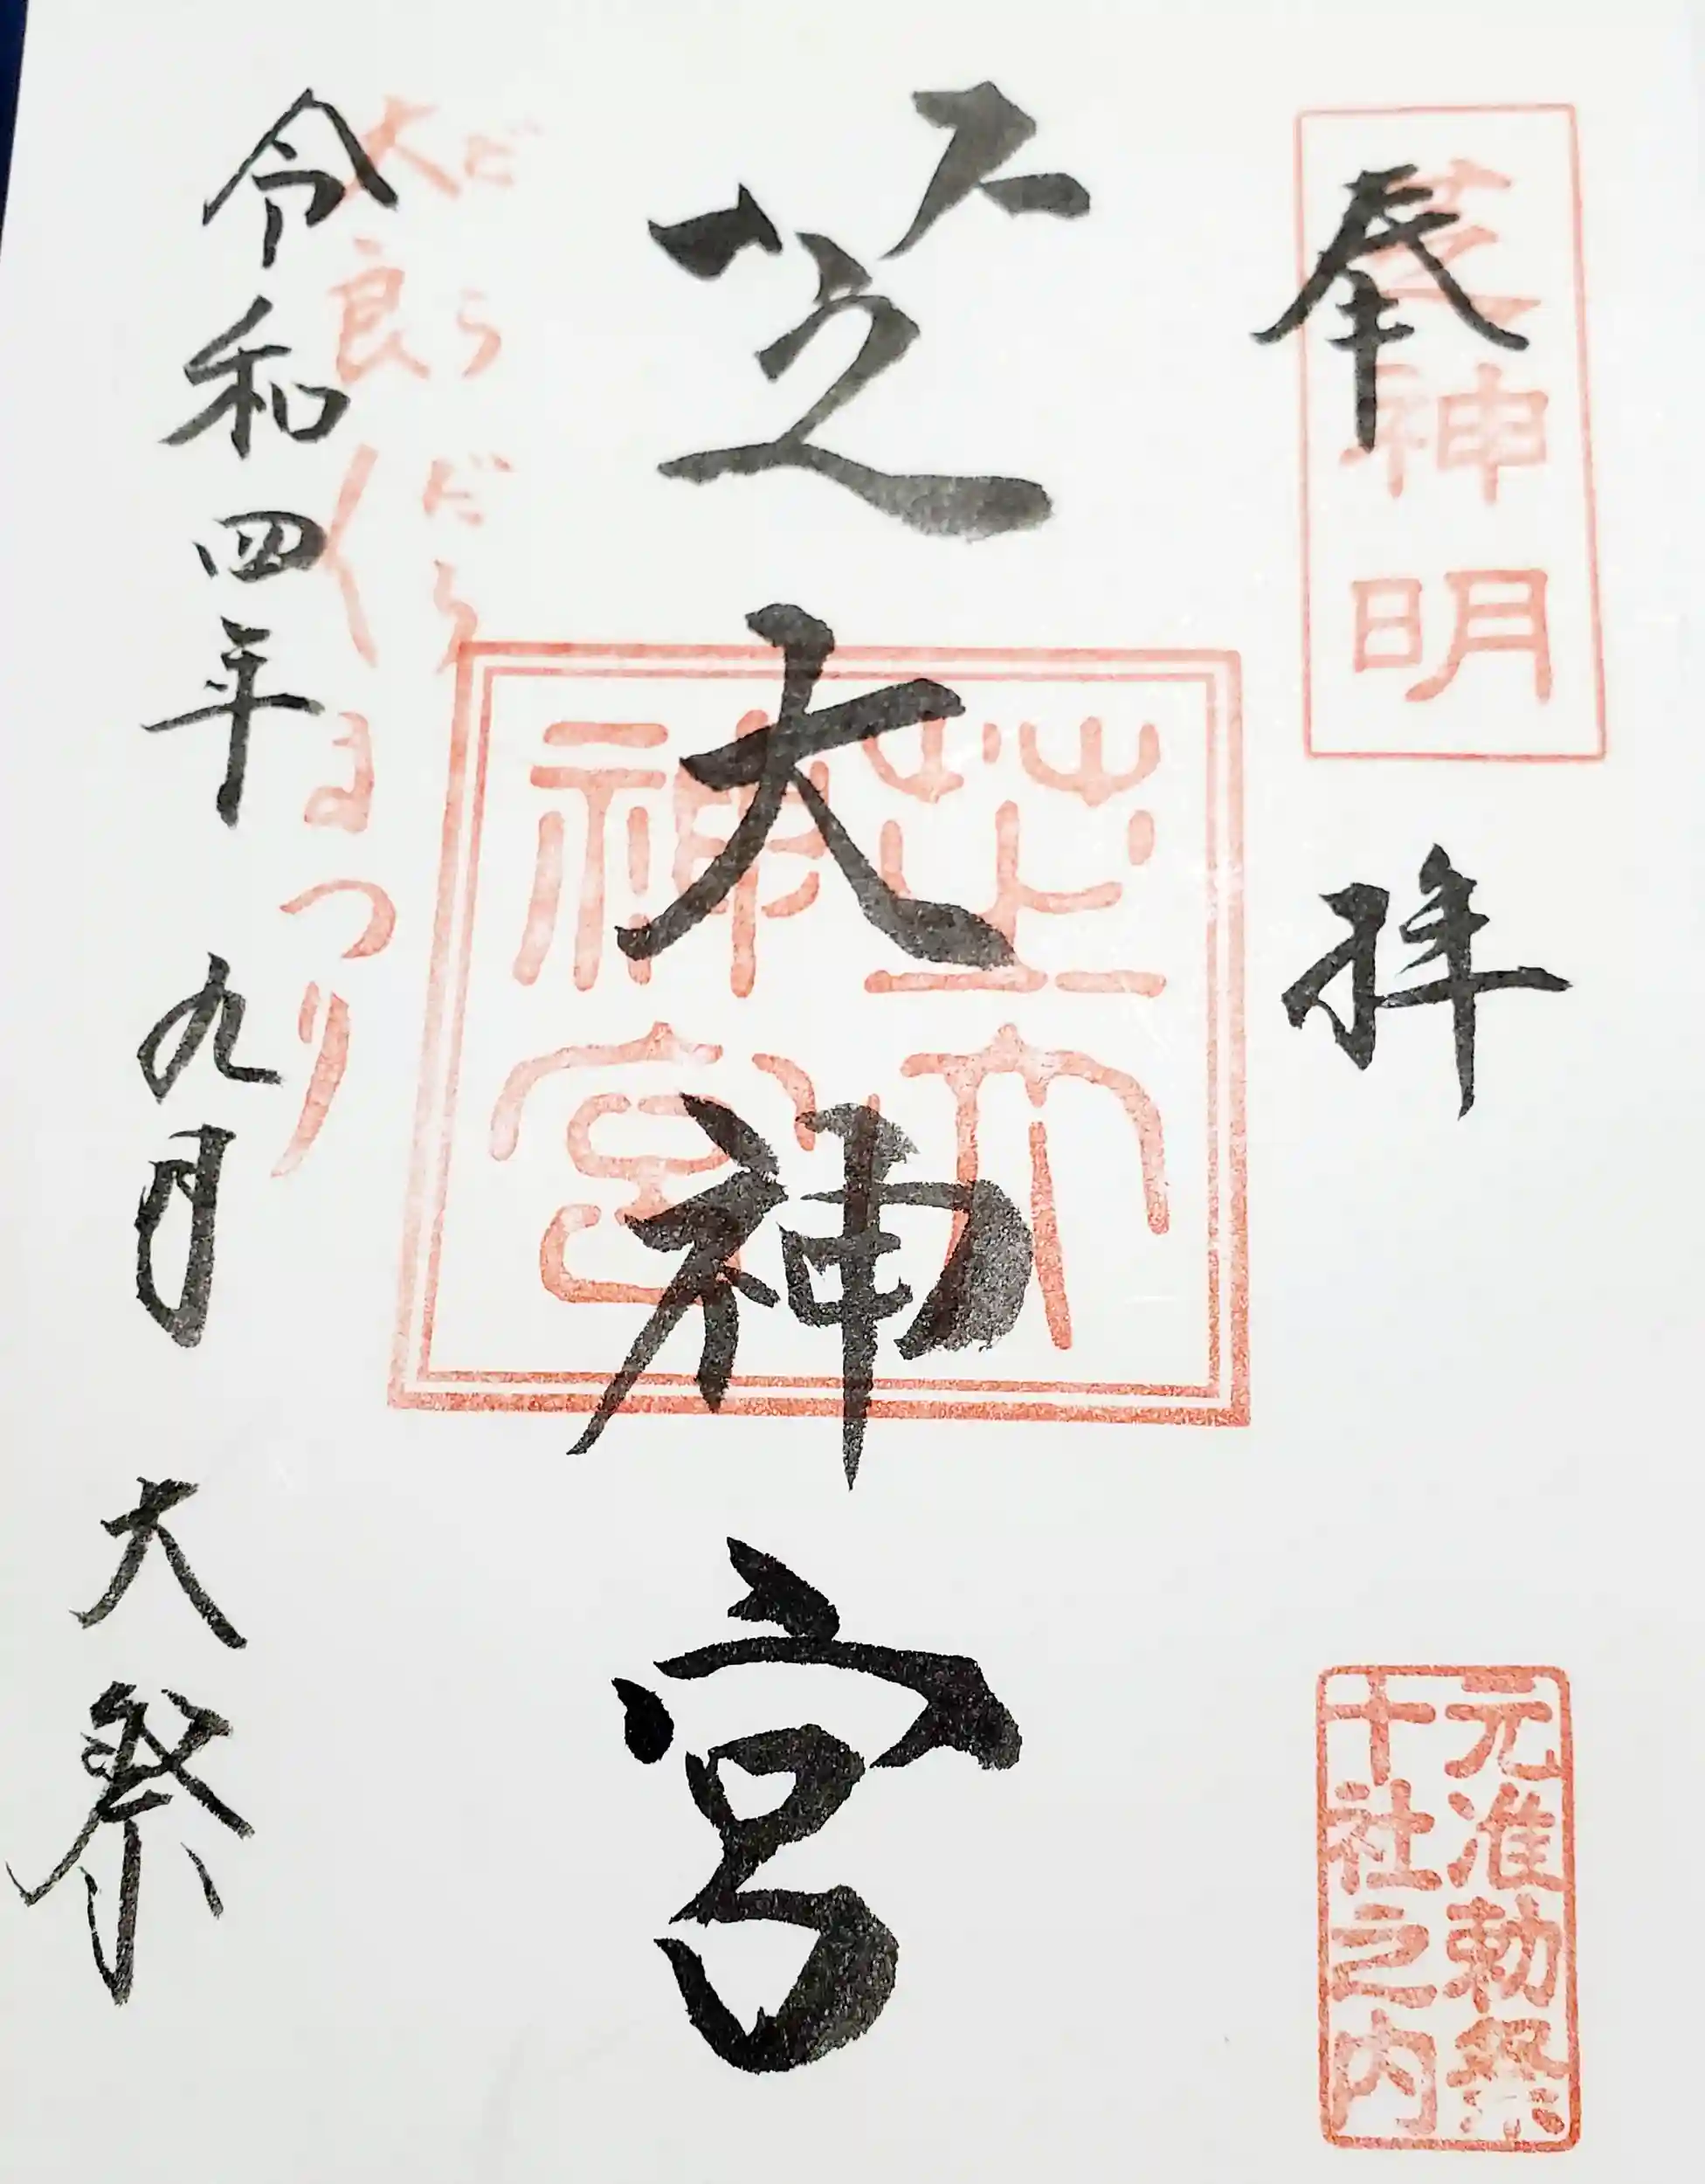 奉拝
芝神明
元准勅祭
十社之内
芝大神宮
芝大
神宮
だらだら
大良〱まつり
令和四年九月大祭